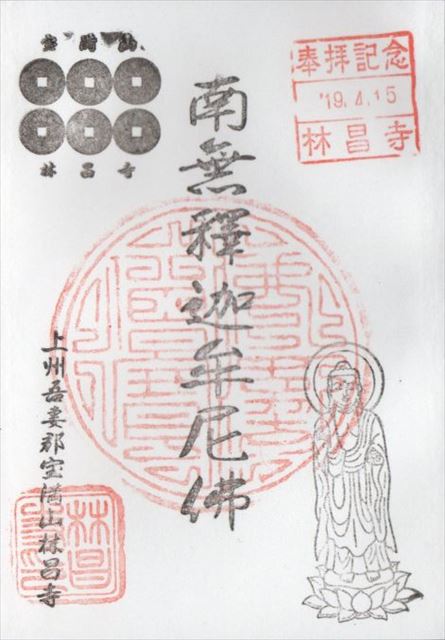 奉拝記念
'19.4.15
林昌寺
林昌寺
南無釋迦牟尼佛
上州吾妻郡宝満山林昌寺
林昌